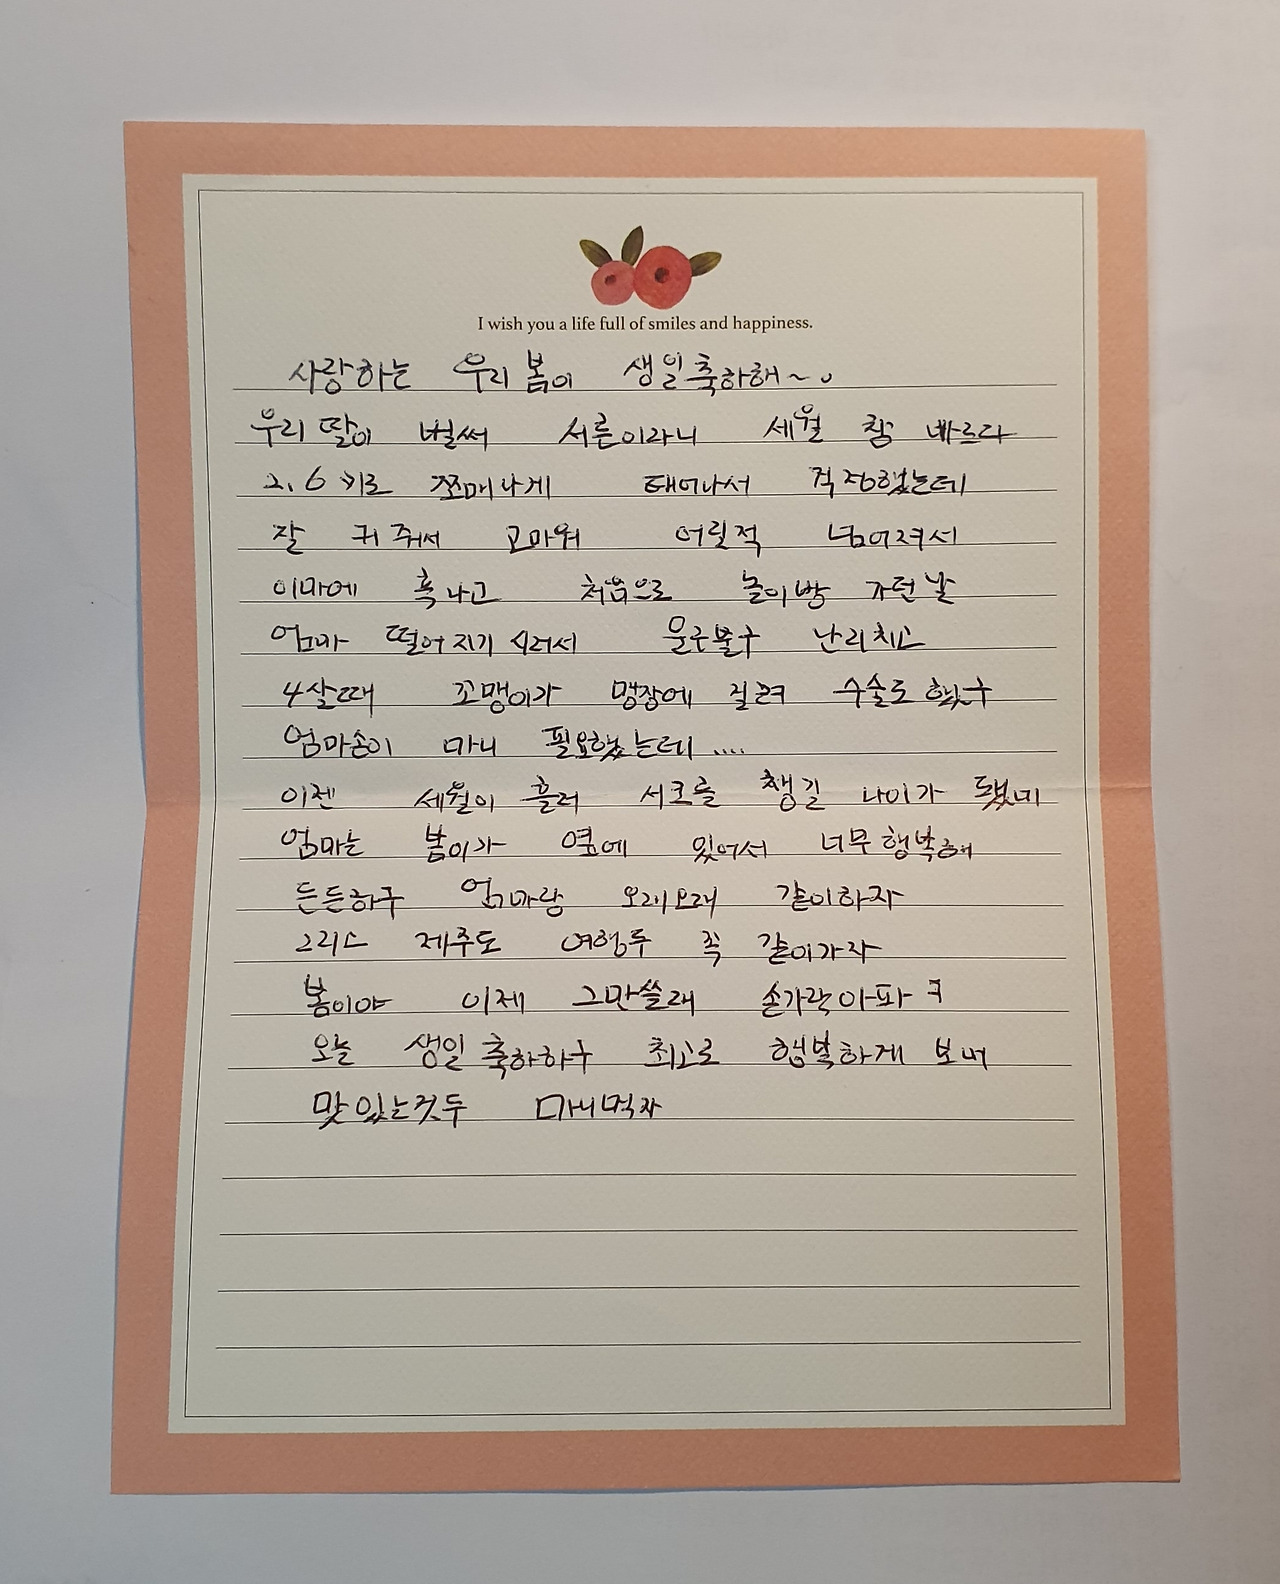 I wish you a life full of smiles and happiness.
사랑하는 우리 봄이 생일축하해~
우리 딸이 벌써 서른이라니 세월 참 빠르다
2.6 키로 쪼매나게 태어나서 걱정했는데
잘 커줘서 고마워 어릴적 넘어져서
이마에 혹나고 처음으로 놀이방 가던날
엄마 떨어지기 시러서 울구불구 난리치고
4살때 꼬맹이가 맹장에 걸려 수술도 했구
엄마손이 마니 필요했는데 ....
이젠 세월이 흘러 서로를 챙길 나이가 됐네
엄마는 봄이가 옆에 있어서 너무 행복해
든든하구 엄마랑 오래오래 같이하자
그리스 제주도 여행두 꼭 같이가자
봄이야 이제 그만쓸래 손가락아파 ㅋ
오늘 생일 축하하구 최고로 행복하게 보내
맛있는것두 마니먹자